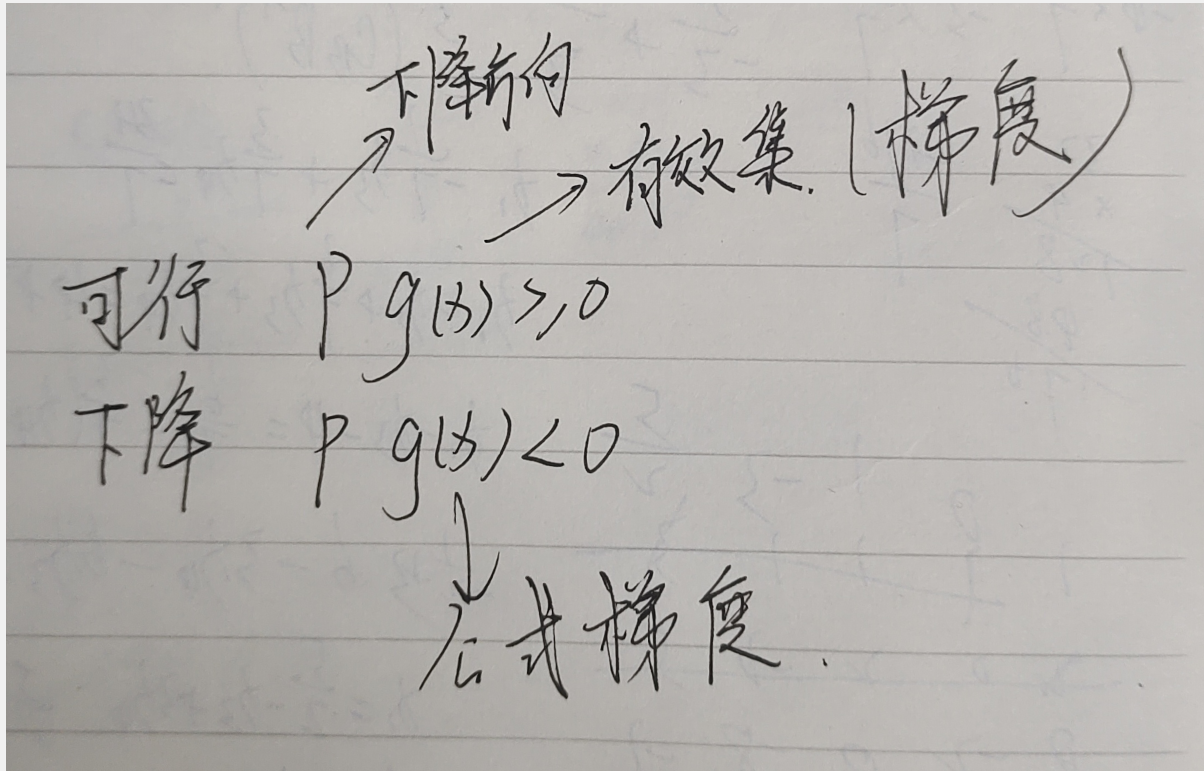 下降方向
有效集.(梯度)
可行 P g(x)≥0
下降 P g(x)<0
公式梯度.